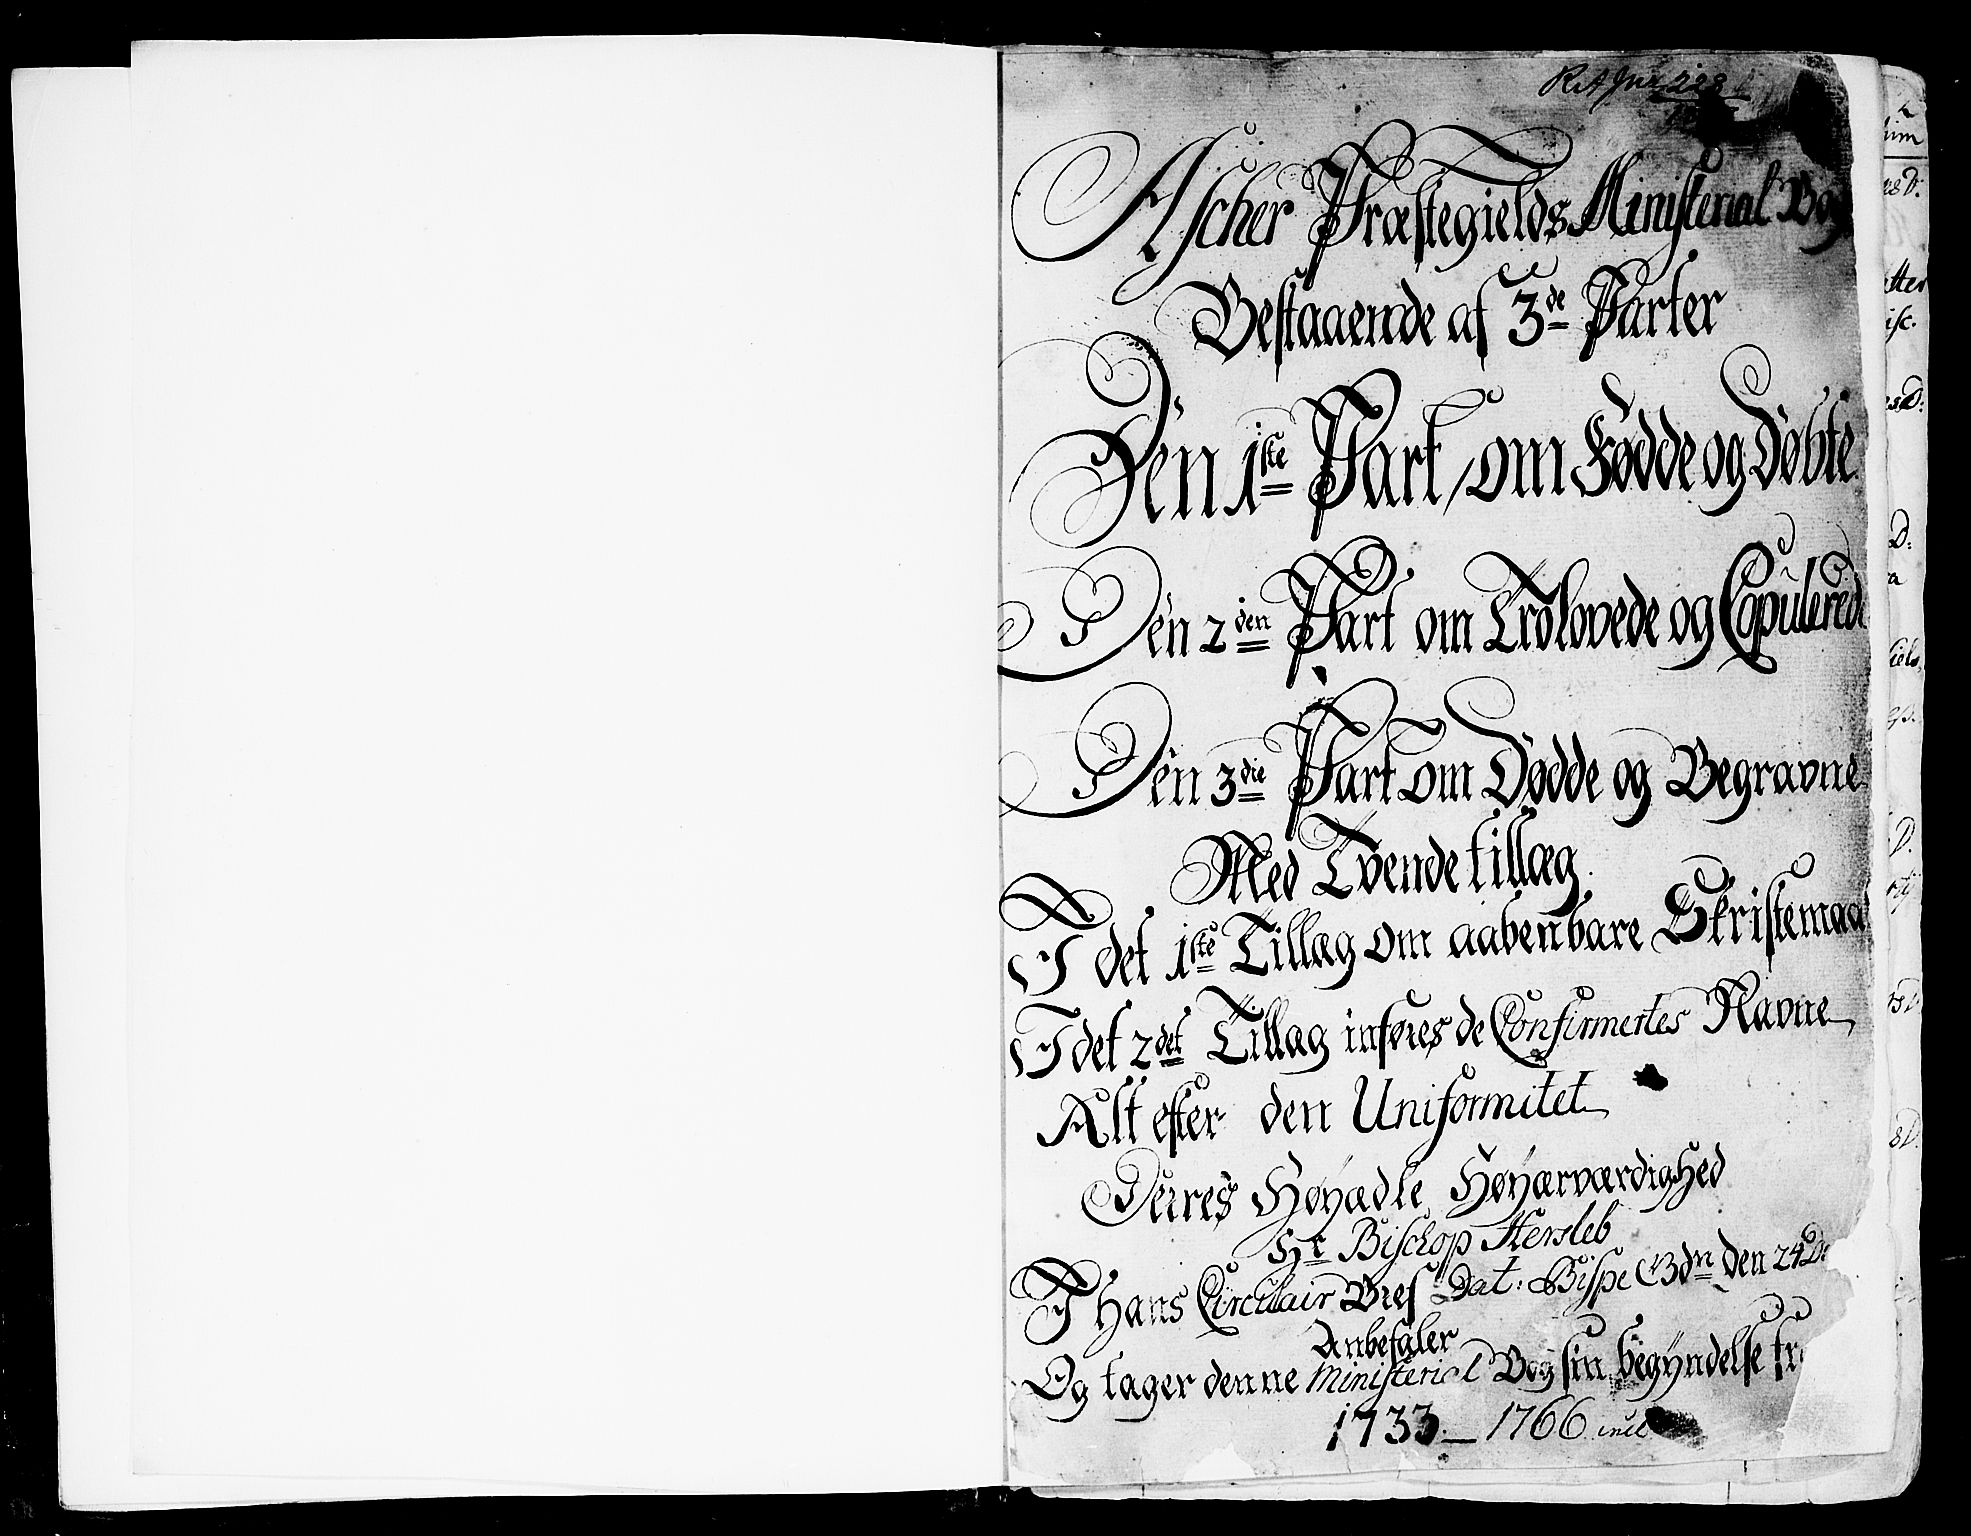 Ascher Præstegields Ministerial Bog
Bestaaende af 3de Parter
Den 1ste Part, om Fødde og Døbte
Den 2den Part om Trolovede og Copulerede
Den 3die Part om Dødde og Begravne
Med Tvende tillæg
I det 1ste Tillæg om aabenbare Skriftemaal
I det 2det Tillæg inføres de Confirmertes Navne
Alt efter den Uniformitet
Deires Høyædle Høyærværdighed
Hr Bischop Hersleb
I Hans Circulair Bref Dat: Bispe G3dn den 24 De
Anbefaler
Og tager denne Ministerial Bog sin begyndelse fra
1733 _ 1766 incl